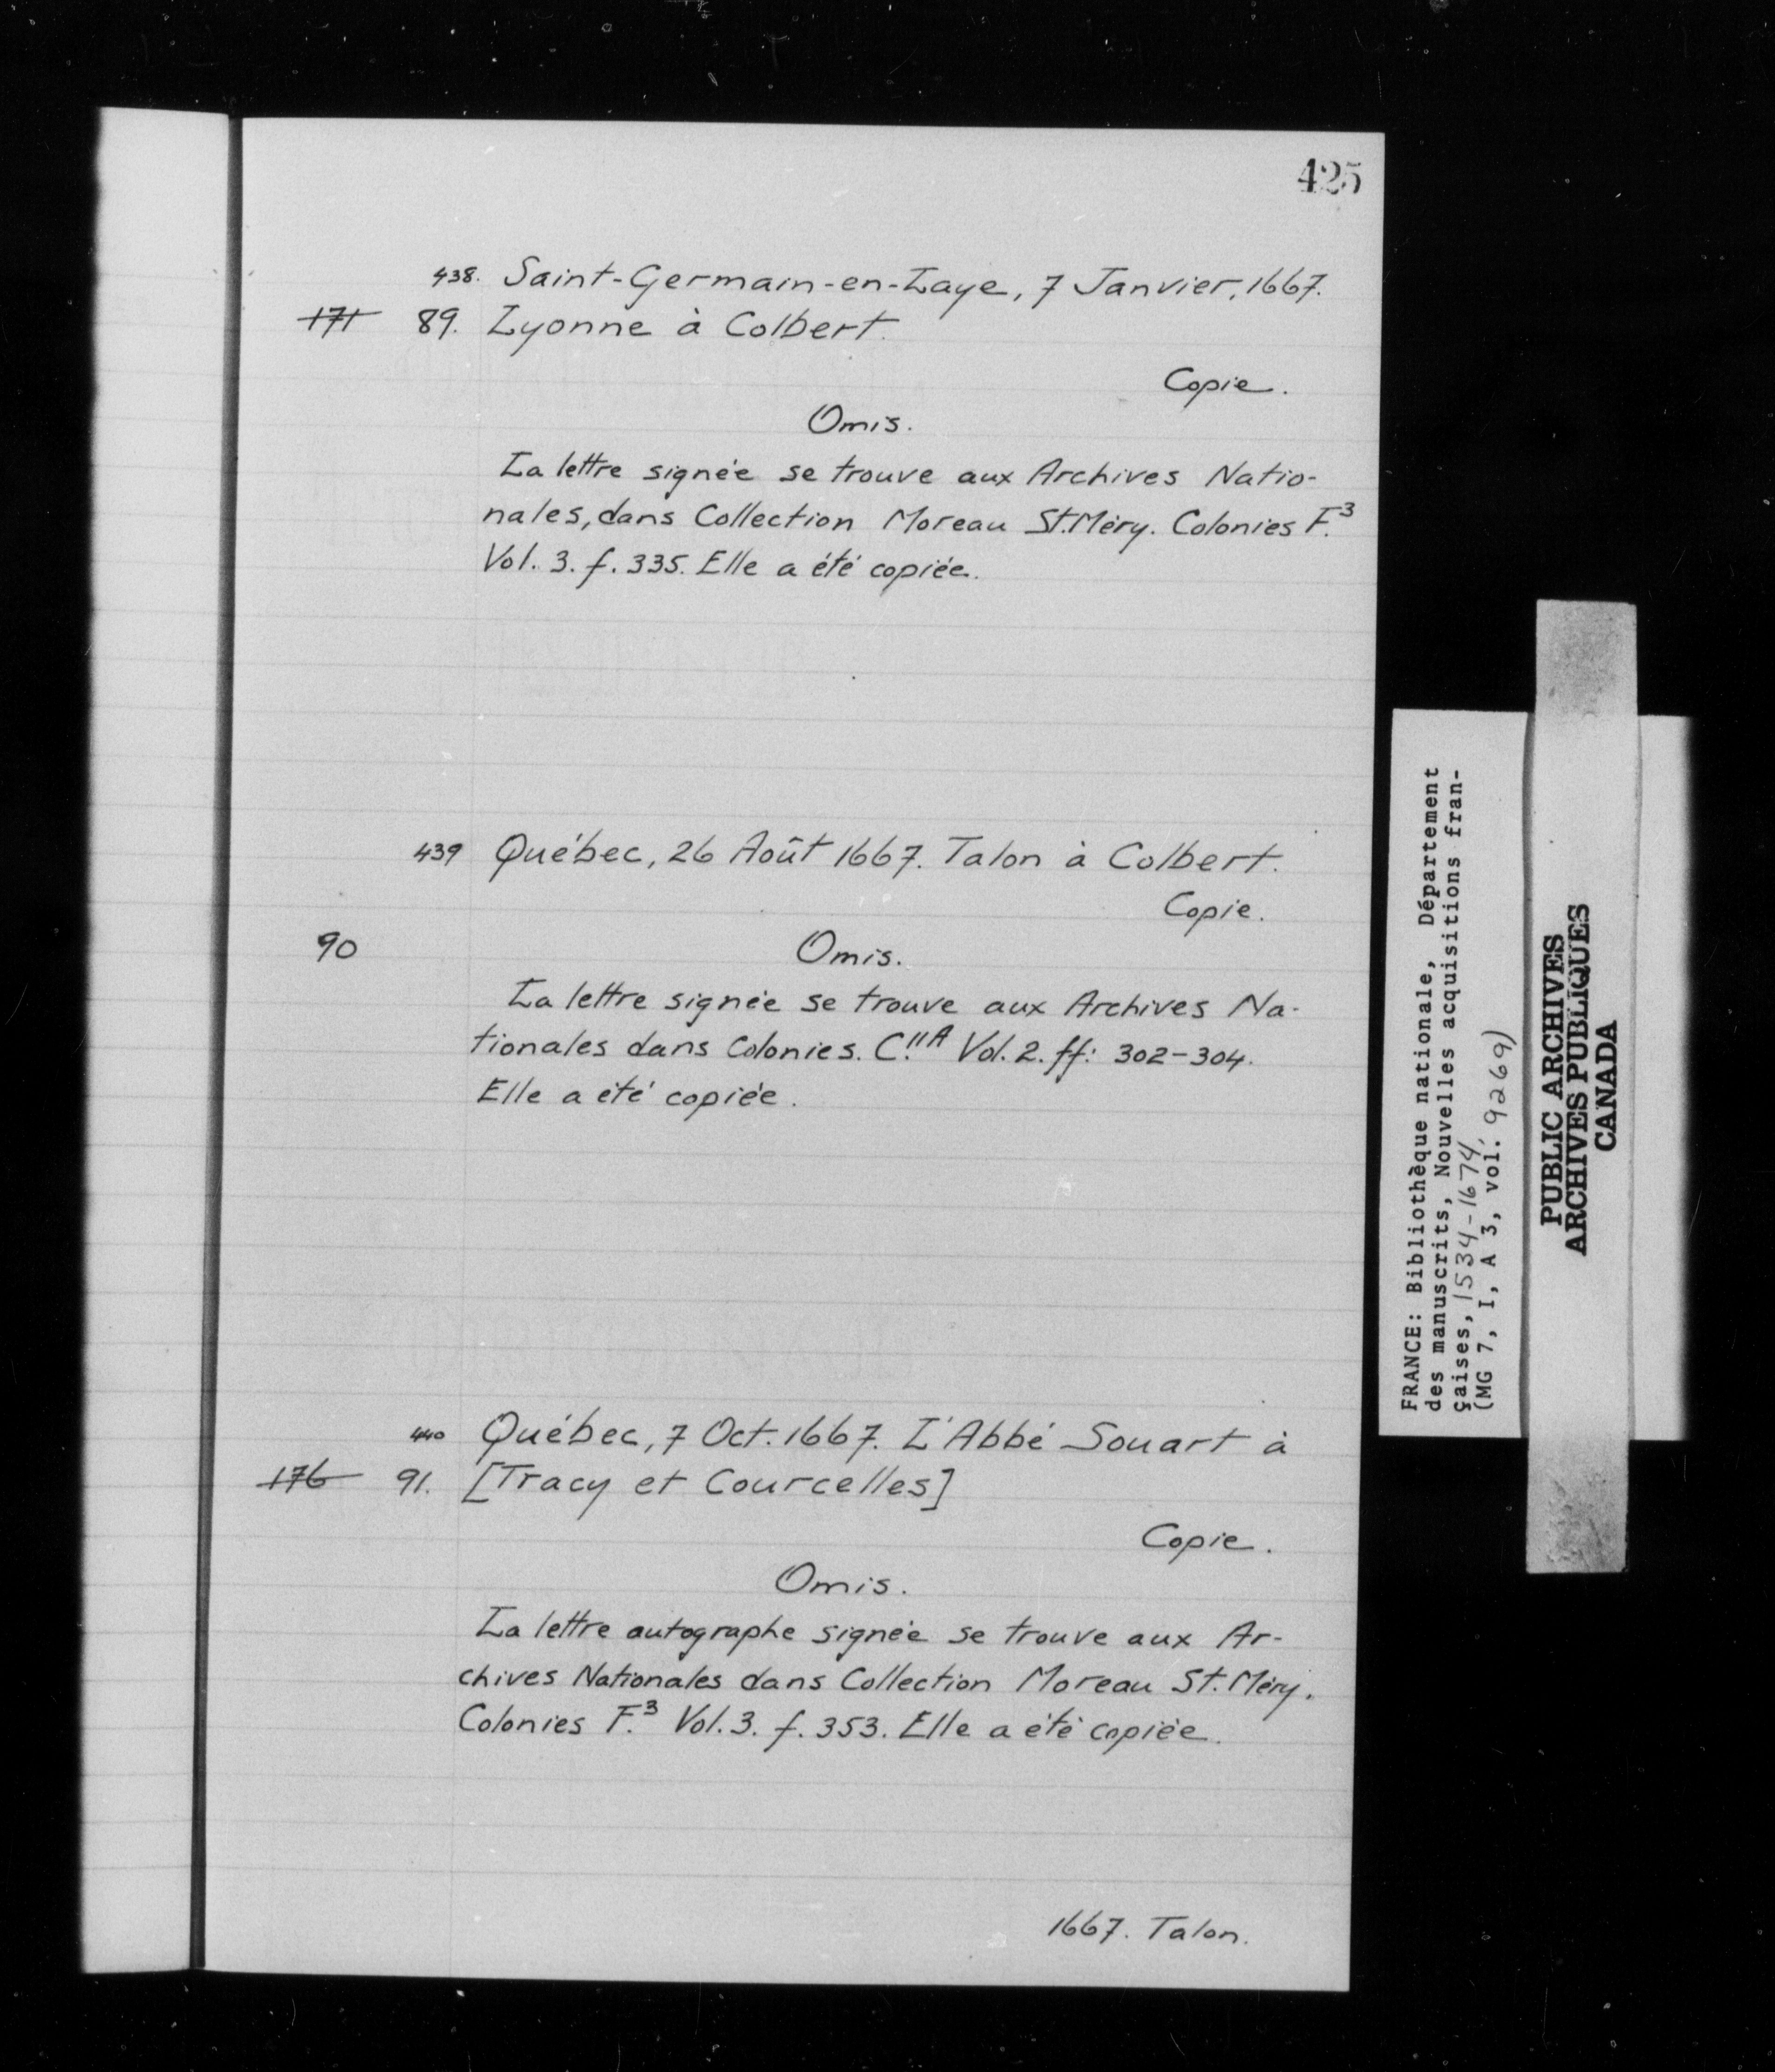 425
438. Saint-Germain-en-Laye, 7 Janvier, 1667.
171 89. Lyonne à Colbert.
Copie.
Omis.
La lettre signée se trouve aux Archives Natio-
nales, dans Collection Moreau St. Méry. Colonies F.3
Vol. 3. f. 335. Elle a été copiée.
439 Québec, 26 Août 1667. Talon à Colbert.
Copie.
90 Omis.
La lettre signée se trouve aux Archives Na-
tionales dans Colonies. C.11A Vol. 2. ff: 302-304.
Elle a été copiée.
440 Québec, 7 Oct. 1667. L'Abbé Souart à
176 91. [Tracy et Courcelles]
Copie.
Omis.
La lettre autographe signée se trouve aux Ar-
chives Nationales dans Collection Moreau St. Méry.
Colonies F.3 Vol. 3. f. 353. Elle a été copiée.
1667. Talon.
FRANCE: Bibliothèque nationale, Département
des manuscrits, Nouvelles acquisitions fran-
çaises, 1534-1674,
(MG 7, I, A 3, vol. 9269)
PUBLIC ARCHIVES
ARCHIVES PUBLIQUES
CANADA